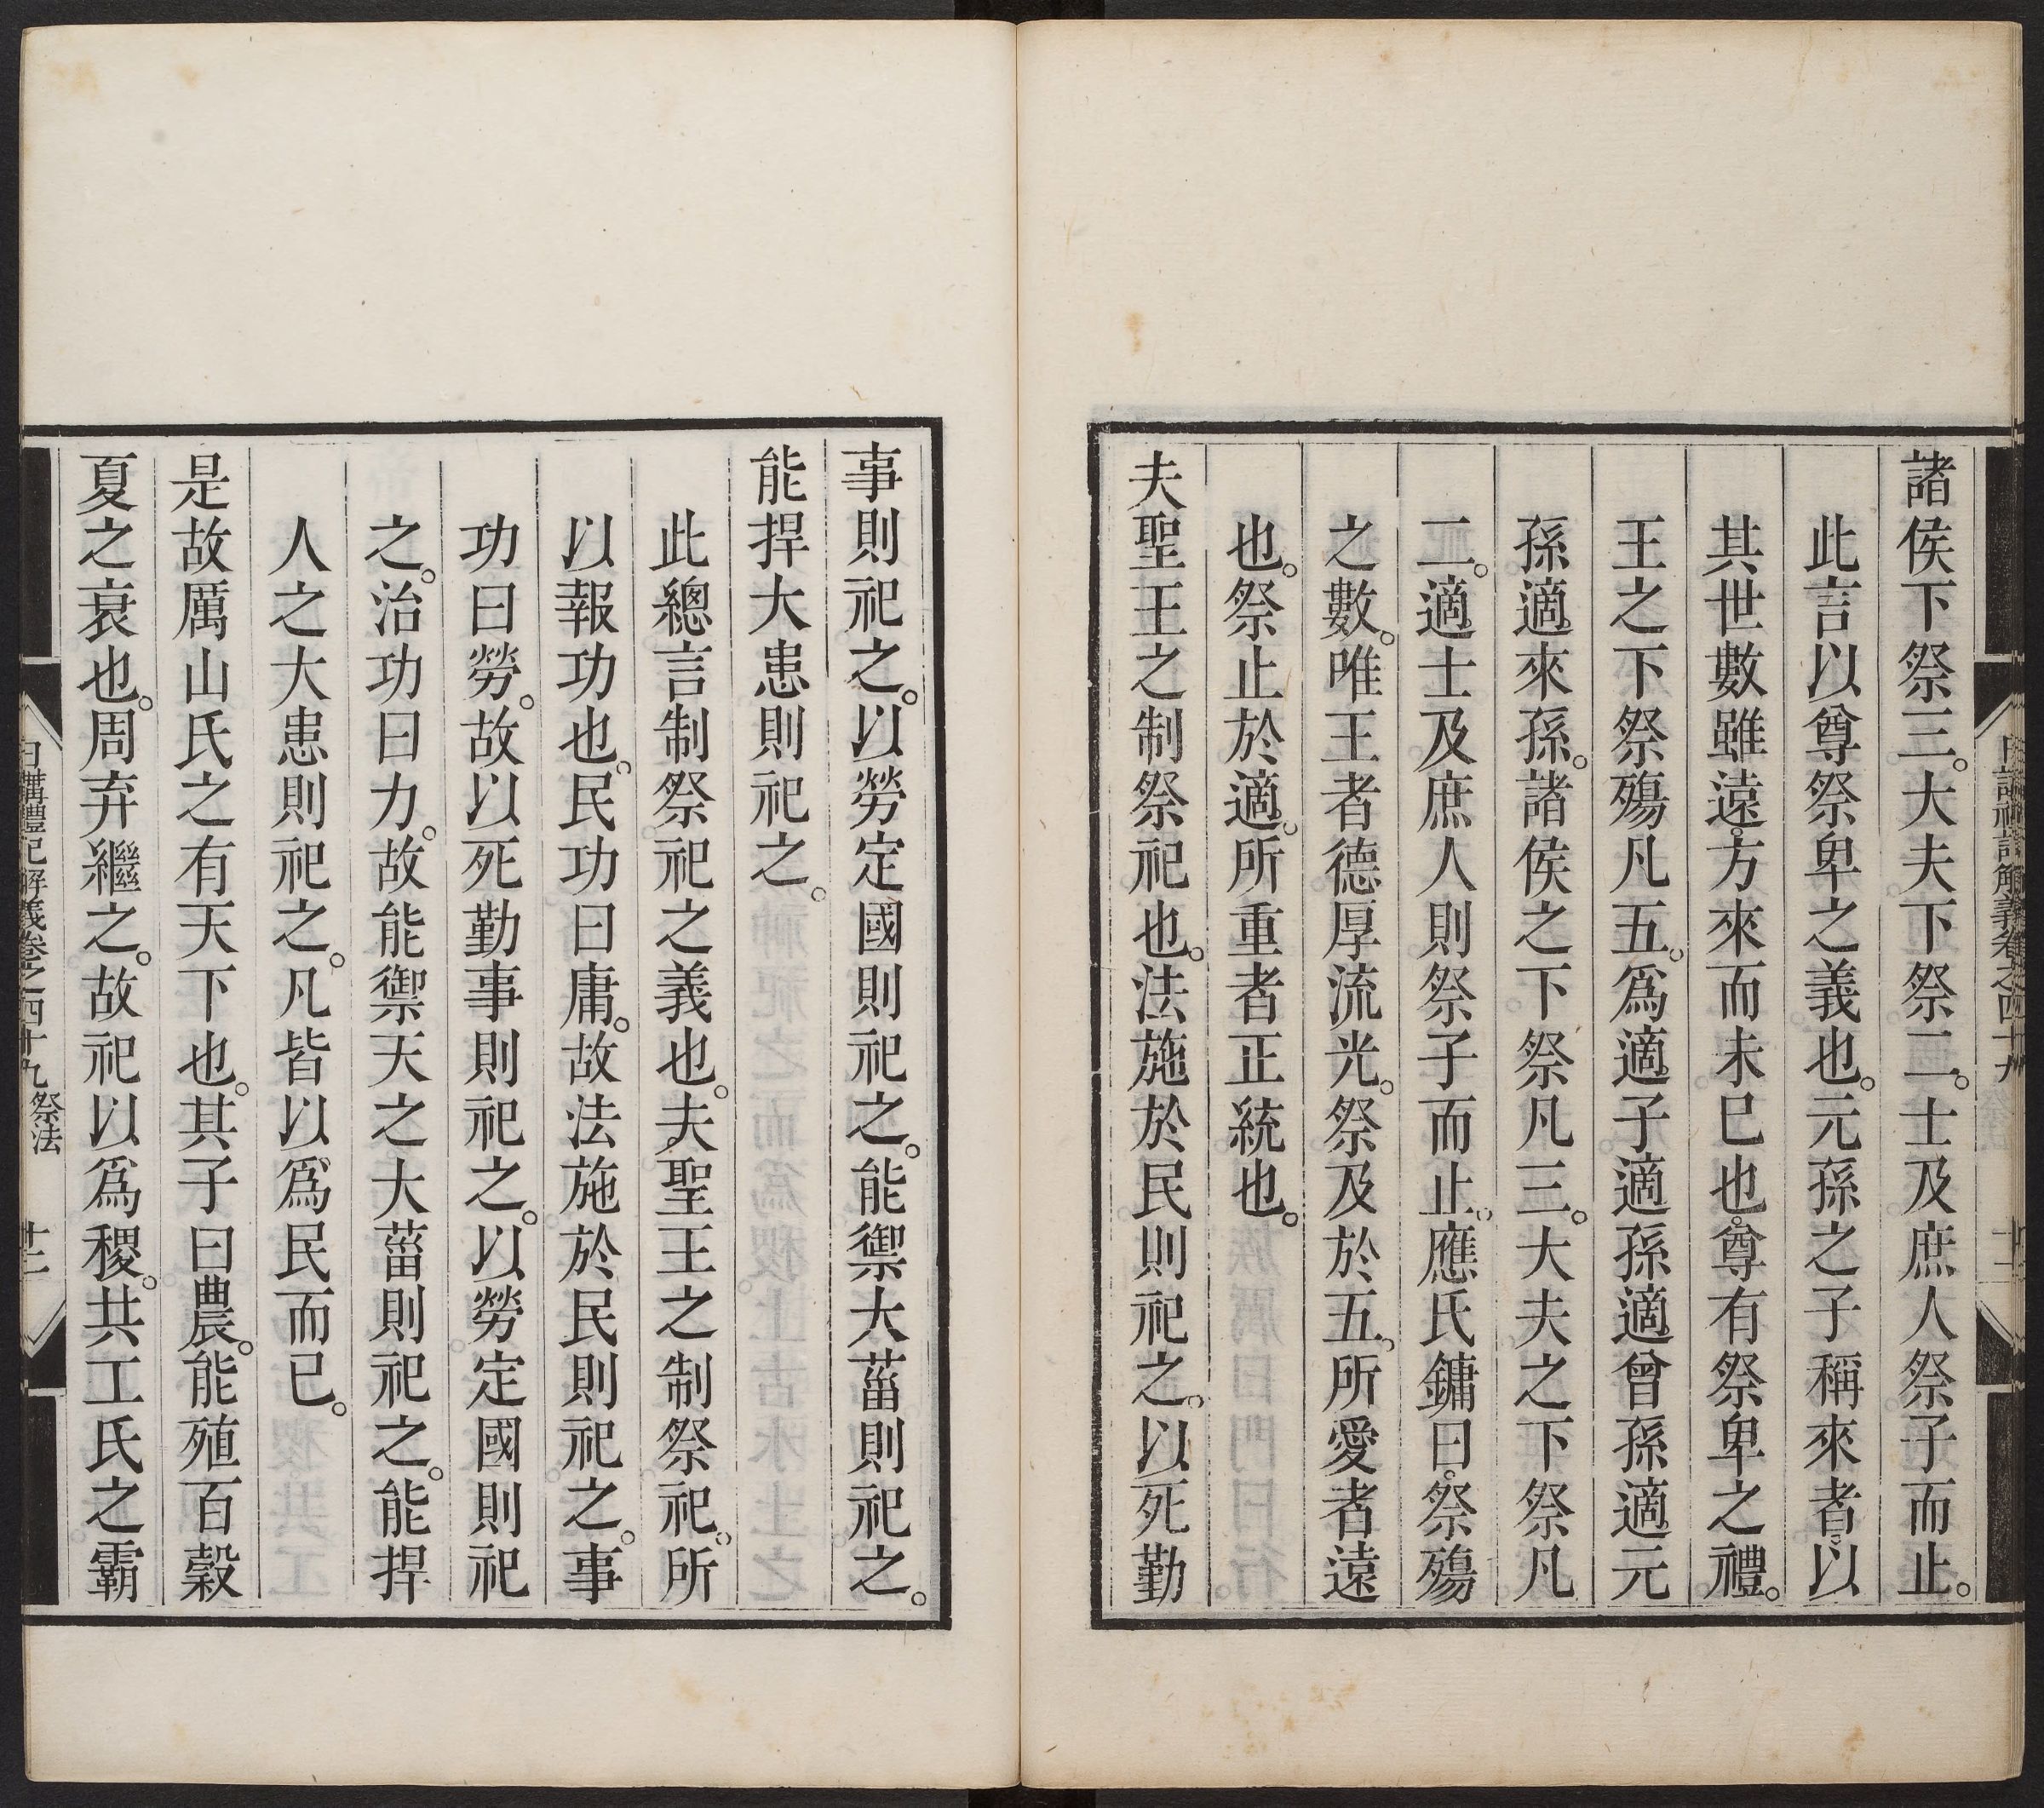 諸侯下祭三。大夫下祭二。士及庶人祭子而止。
此言以尊祭卑之義也。元孫之子稱來者。以
其世數雖遠。方來而未已也。尊有祭卑之禮。
王之下祭殤凡五。爲適子適孫適曾孫適元
孫適來孫。諸侯之下祭凡三。大夫之下祭凡
二。適士及庶人則祭子而止。應氏鏞曰。祭殤
之數。唯王者德厚流光。祭及於五。所愛者遠
也。祭止於適。所重者正統也。
夫聖王之制祭祀也。法施於民則祀之。以死勤
事則祀之。以勞定國則祀之。能禦大菑則祀之。
能捍大患則祀之。
此總言制祭祀之義也。夫聖王之制祭祀。所
以報功也。民功曰庸。故法施於民則祀之。事
功曰勞。故以死勤事則祀之。以勞定國則祀
之。治功曰力。故能禦天之大菑則祀之。能捍
人之大患則祀之。凡皆以爲民而已。
是故厲山氏之有天下也。其子曰農。能殖百穀
夏之衰也。周弃繼之。故祀以爲稷。共工氏之霸
日講禮記解義卷之四十九 祭法